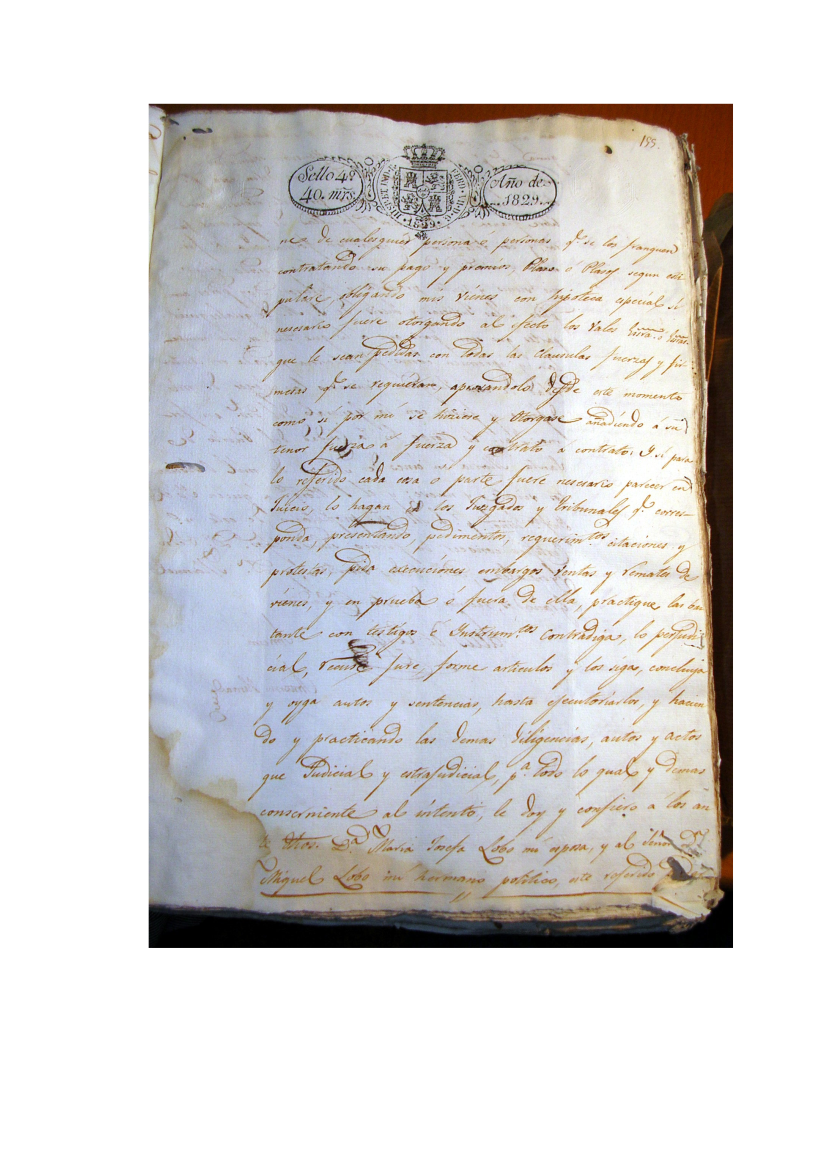 155.
Sello 4º
40. mrs.
Año de
1829.
HISP. ET IND. R
1829
ne de cualesquier persona o personas qe. se los franqueen
contratando su pago y premios, Plazo ó Plazos segun esti
pulare obligando mis vienes con hipoteca especial si
necesario fuere otorgando al efecto los Vales
que le sean pedidas con todas las clausulas fuerzas y fir
mesas qe. se requieran, aprovandolo desde este momento
como si por mi se hiciere y otorgase añadiendo á su
tenor fuerza á fuerza y contrato a contrato. Y si para
lo referido cada cosa o parte fuere necesario parecer en
Juicio, lo hagan en los Juzgados y Tribunales qe. corres-
ponda, presentando pedimentos, requerimtos citaciones y
protestas, pida execuciones embargos ventas y remates de
vienes, y en prueba ó fuera de ella, practique las
tante con testigos é Instrumtos contradiga, lo perjudi
cial, recuse jure, forme articulos y los siga, concluya
y oyga autos y sentencias, hasta ejecutoriarlos, y hacien
do y practicando las demas diligencias, autos y actos
que Judicial y estrajudicial, pa. todo lo qual y demas
conserniente al intento, le doy y confiero á los an
te dhos. Da. Maria Josefa Lobo mi esposa, y al Señor Dn.
Miguel Lobo mi hermano politico, este referido